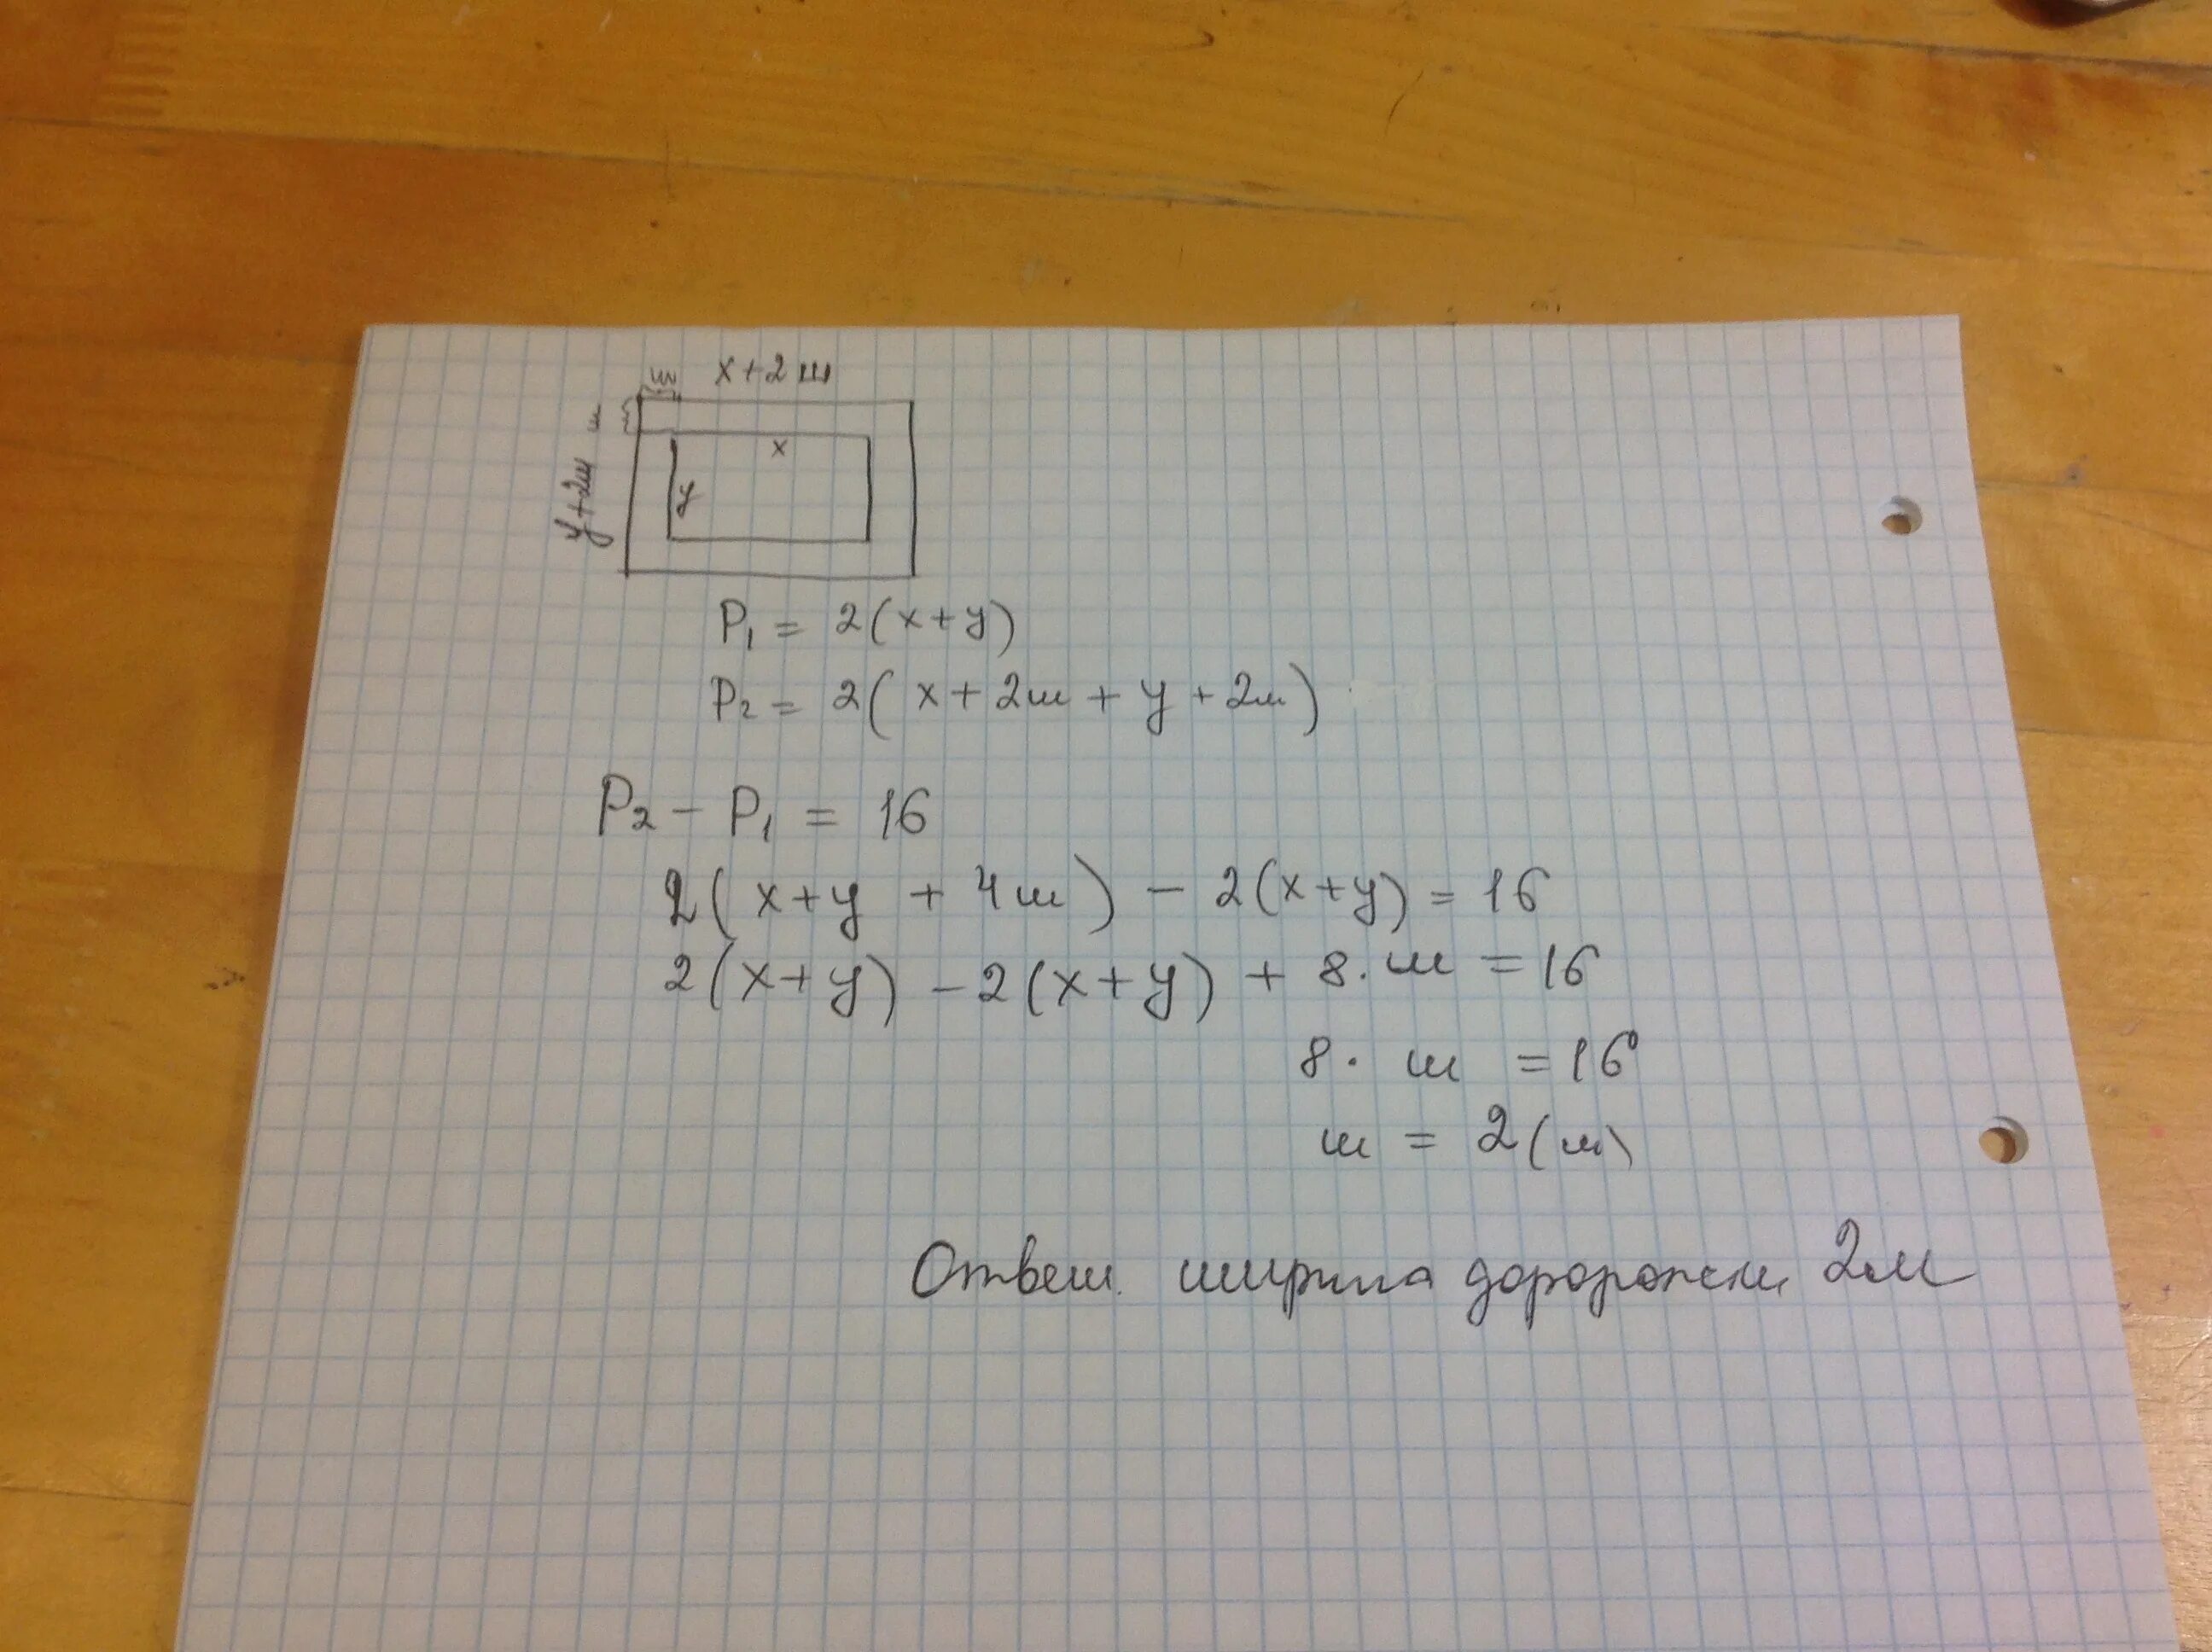 ш x+2ш
ш
y+2ш
x
y
P₁ = 2(x+y)
P₂ = 2( x+2ш + y +2ш)
P₂ - P₁ = 16
2( x+y + 4ш) - 2(x+y) = 16
2(x+y) - 2(x+y) + 8·ш = 16
8· ш = 16
ш = 2(м)
Ответ. ширина доророжки 2м